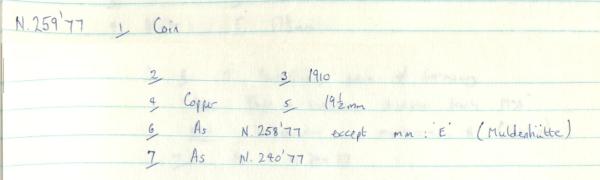 N.259'77 1 Coin
2 3 1910
4 Copper 5 19½mm
6 As N.258'77 except mm : 'E' (Muldenhütte)
7 As N.240'77